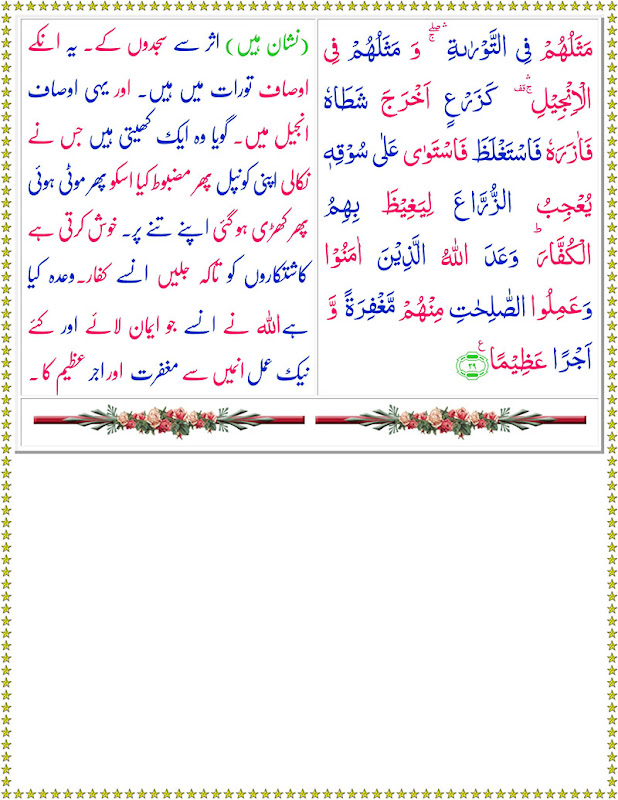 مَثَلُهُمْ فِي التَّوْرٰىةِ ۛۖۚ وَ مَثَلُهُمْ فِي
الْاِنْجِيْلِ ۛ۫ۚ كَزَرْعٍ اَخْرَجَ شَطْاَهٗ
فَاٰزَرَهٗ فَاسْتَغْلَظَ فَاسْتَوٰى عَلٰى سُوْقِهٖ
يُعْجِبُ الزُّرَّاعَ لِيَغِيْظَ بِهِمُ
الْكُفَّارَ ؕ وَعَدَ اللّٰهُ الَّذِيْنَ اٰمَنُوْا
وَعَمِلُوا الصّٰلِحٰتِ مِنْهُمْ مَّغْفِرَةً وَّ
اَجْرًا عَظِيْمًا ۧ ۲۹
(نشان ہیں) اثر سے سجدوں کے۔ یہ انکے
اوصاف تورات میں ہیں۔ اور یہی اوصاف
انجیل میں۔ گویا وہ ایک کھیتی ہیں جس نے
نکالی اپنی کونپل پھر مضبوط کیا اسکو پھر موٹی ہوئی
پھر کھڑی ہوگئی اپنے تنے پر۔ خوش کرتی ہے
کاشتکاروں کو تاکہ جلیں انسے کفار۔ وعدہ کیا
ہے اللہ نے انسے جو ایمان لائے اور کئے
نیک عمل انمیں سے مغفرت اور اجر عظیم کا۔